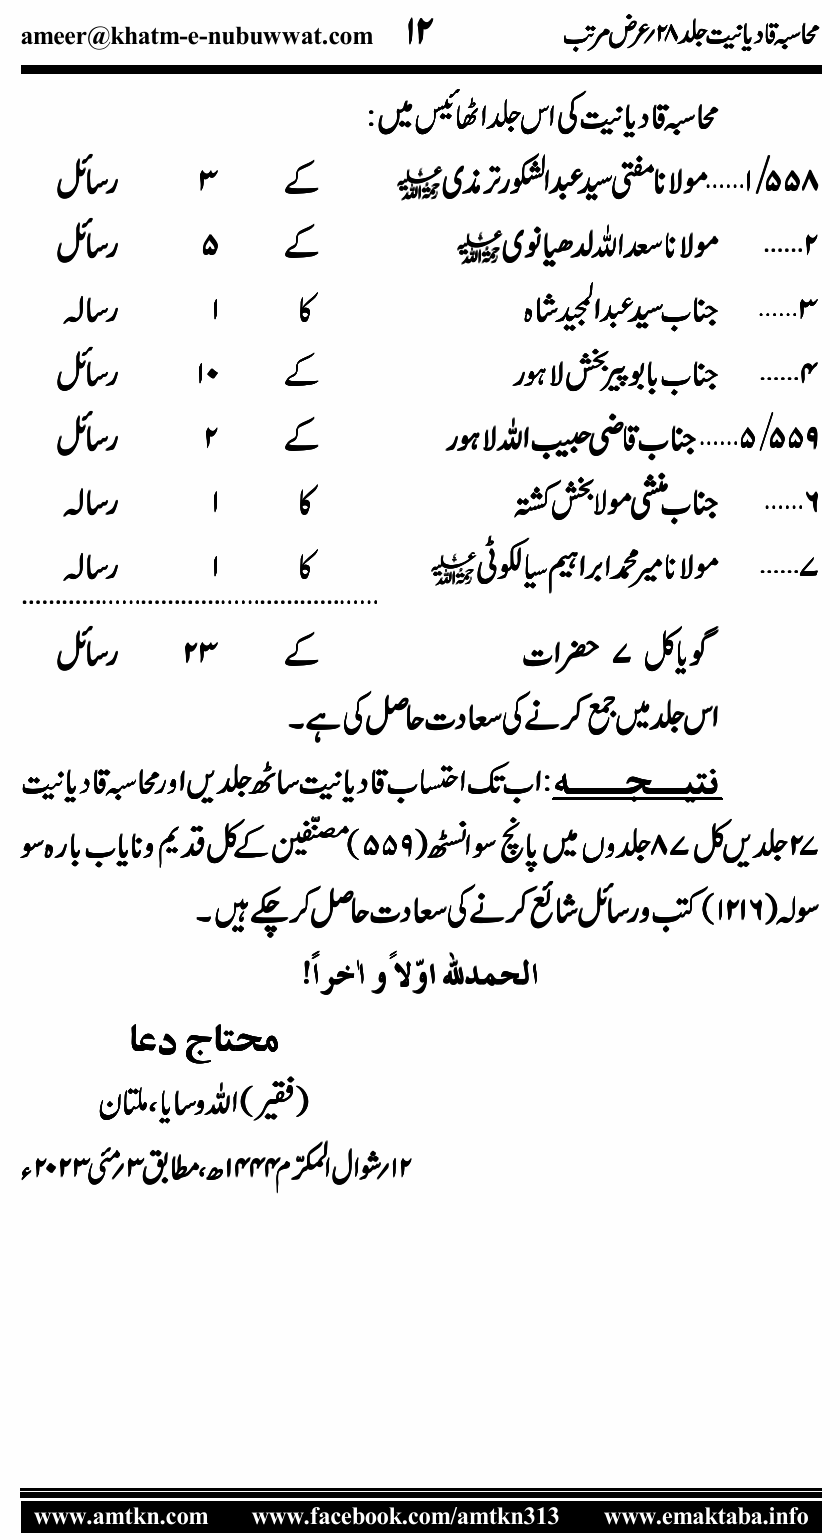 محاسبہ قادیانیت جلد ۲۸؍عرض مرتب ۱۲ ameer@khatm-e-nubuwwat.com
محاسبہ قادیانیت کی اس جلد اٹھائیس میں:
۱/۵۵۸......مولانا مفتی سید عبدالشکور ترمذی رحمۃ اللہ علیہ کے ۳ رسائل
۲...... مولانا سعد اللہ لدھیانوی رحمۃ اللہ علیہ کے ۵ رسائل
۳...... جناب سید عبدالمجید شاہ کا ۱ رسالہ
۴...... جناب بابو پیر بخش لاہور کے ۱۰ رسائل
۵/۵۵۹......جناب قاضی حبیب اللہ لاہور کے ۲ رسائل
۶...... جناب منشی مولا بخش کشتہ کا ۱ رسالہ
۷...... مولانا میر محمد ابراہیم سیالکوٹی رحمۃ اللہ علیہ کا ۱ رسالہ
گویا کل ۷ حضرات کے ۲۳ رسائل
اس جلد میں جمع کرنے کی سعادت حاصل کی ہے۔
نتیجہ: اب تک احتساب قادیانیت ساٹھ جلدیں اور محاسبہ قادیانیت
۲۷ جلدیں کل ۸۷ جلدوں میں پانچ سو انسٹھ (۵۵۹) مصنّفین کے کل قدیم و نایاب بارہ سو
سولہ (۱۲۱۶) کتب و رسائل شائع کرنے کی سعادت حاصل کر چکے ہیں۔
الحمدللہ اوّلاً و اٰخراً!
محتاج دعا
(فقیر) اللہ وسایا، ملتان
۱۲؍شوال المکرّم ۱۴۴۴ھ، مطابق ۳؍مئی ۲۰۲۳ء
www.amtkn.com www.facebook.com/amtkn313 www.emaktaba.info